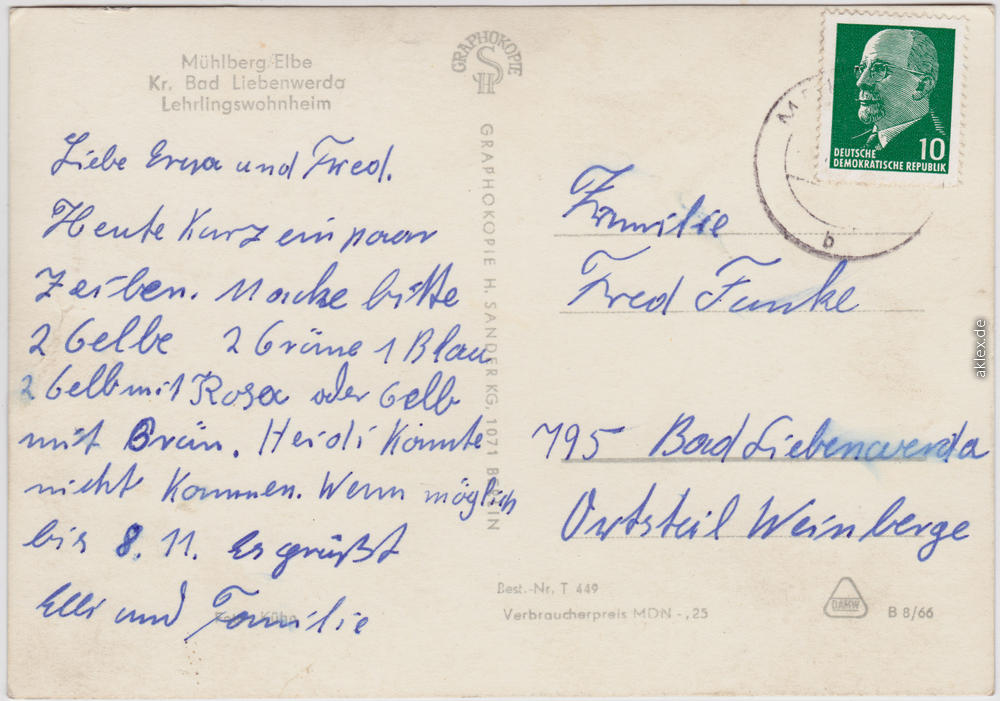 Mühlberg/Elbe
Kr. Bad Liebenwerda
Lehrlingswohnheim
Liebe Erna und Fred.
Heute Kurz ein paar
Zeilen. Macke bitte
2 Gelbe 2 Grüne 1 Blau
2 Gelb mit Rosa oder Gelb
mit Grün. Heidi Konnte
nicht Kommen. Wenn möglich
bis 8. 11. Es grüßt
Elli und Familie
GRAPHOKOPIE
SH
GRAPHOKOPIE H. SANDER KG, 1071 BERLIN
DEUTSCHE
DEMOKRATISCHE REPUBLIK
10
b
Familie
Fred Funke
795 Bad Liebenwerda
Ortsteil Weinberge
Best.-Nr. T 449
Verbraucherpreis MDN -,25
DAMW
B 8/66
aklex.de